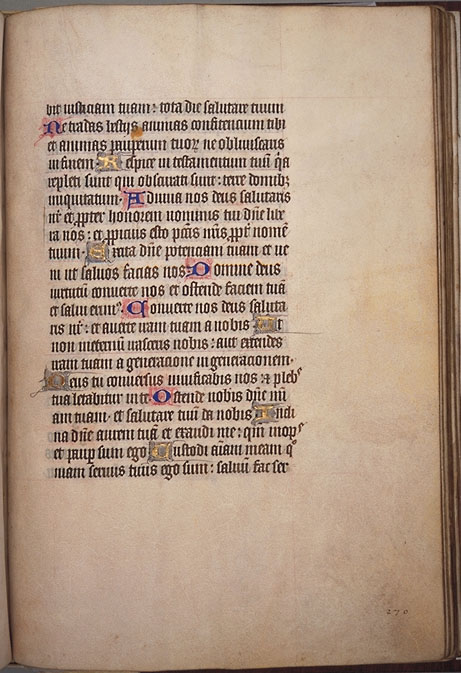 bit iusticiam tuam: tota die salutare tuum
Ne tradas bestijs animas confitencium tibi
et animas pauperum tuoꝝ ne obliuiscaris
in finem· Respice in testamentum tuū q̄a
repleti sunt qui obscurati sunt: terre domibꝫ
iniquitatum· Adiuua nos deus salutaris
nr̄ et ꝓpter honorem nominis tui dn̄e libe
ra nos: et ꝓpicius esto pctīs nr̄is ꝓpt̄ nomē
tuum· Excita dn̄e potenciam tuam et ve
ni ut saluos facias nos Domine deus
uirtutū conuerte nos et ostende faciem tuā
et salui erimꝰ· Conuerte nos deus saluta
ris nr̄: et auerte iram tuam a nobis Ut
non ineternū irasceris nobis: aut extendes
iram tuam a generacione in generacionem·
Deus tu conuersus uiuificabis nos ⁊ plebs
tua letabitur in te Ostende nobis dn̄e mī
am tuam· et salutare tuū da nobis Incli
na dn̄e aurem tuā et exaudi me: qm̄ inopꝰ
et paup sum ego Custodi aīam meam qͦ
niam seruus tuus ego sum: saluū fac ser
270